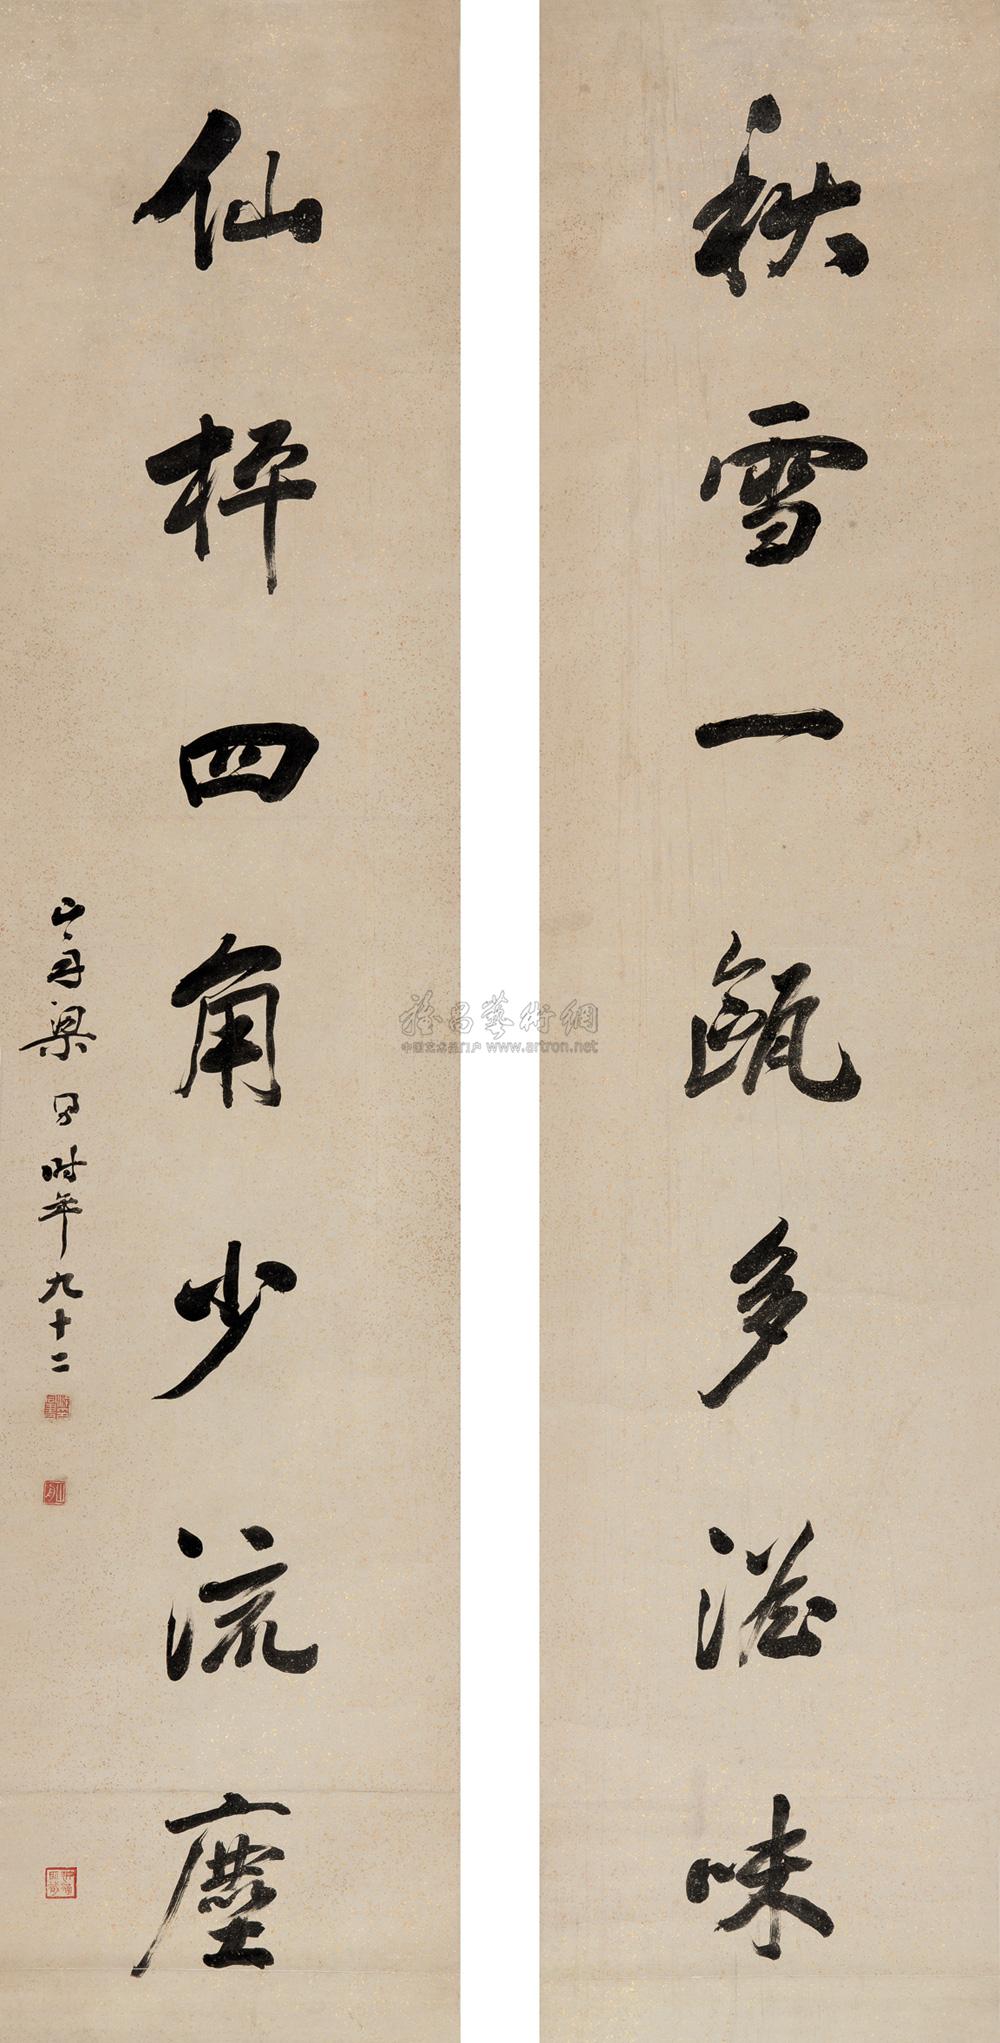 秋雪一甌多澁味
仙枰四角少流塵
山舟梁同書時年九十二
雅昌藝術網
中国艺术品门户 www.artron.net